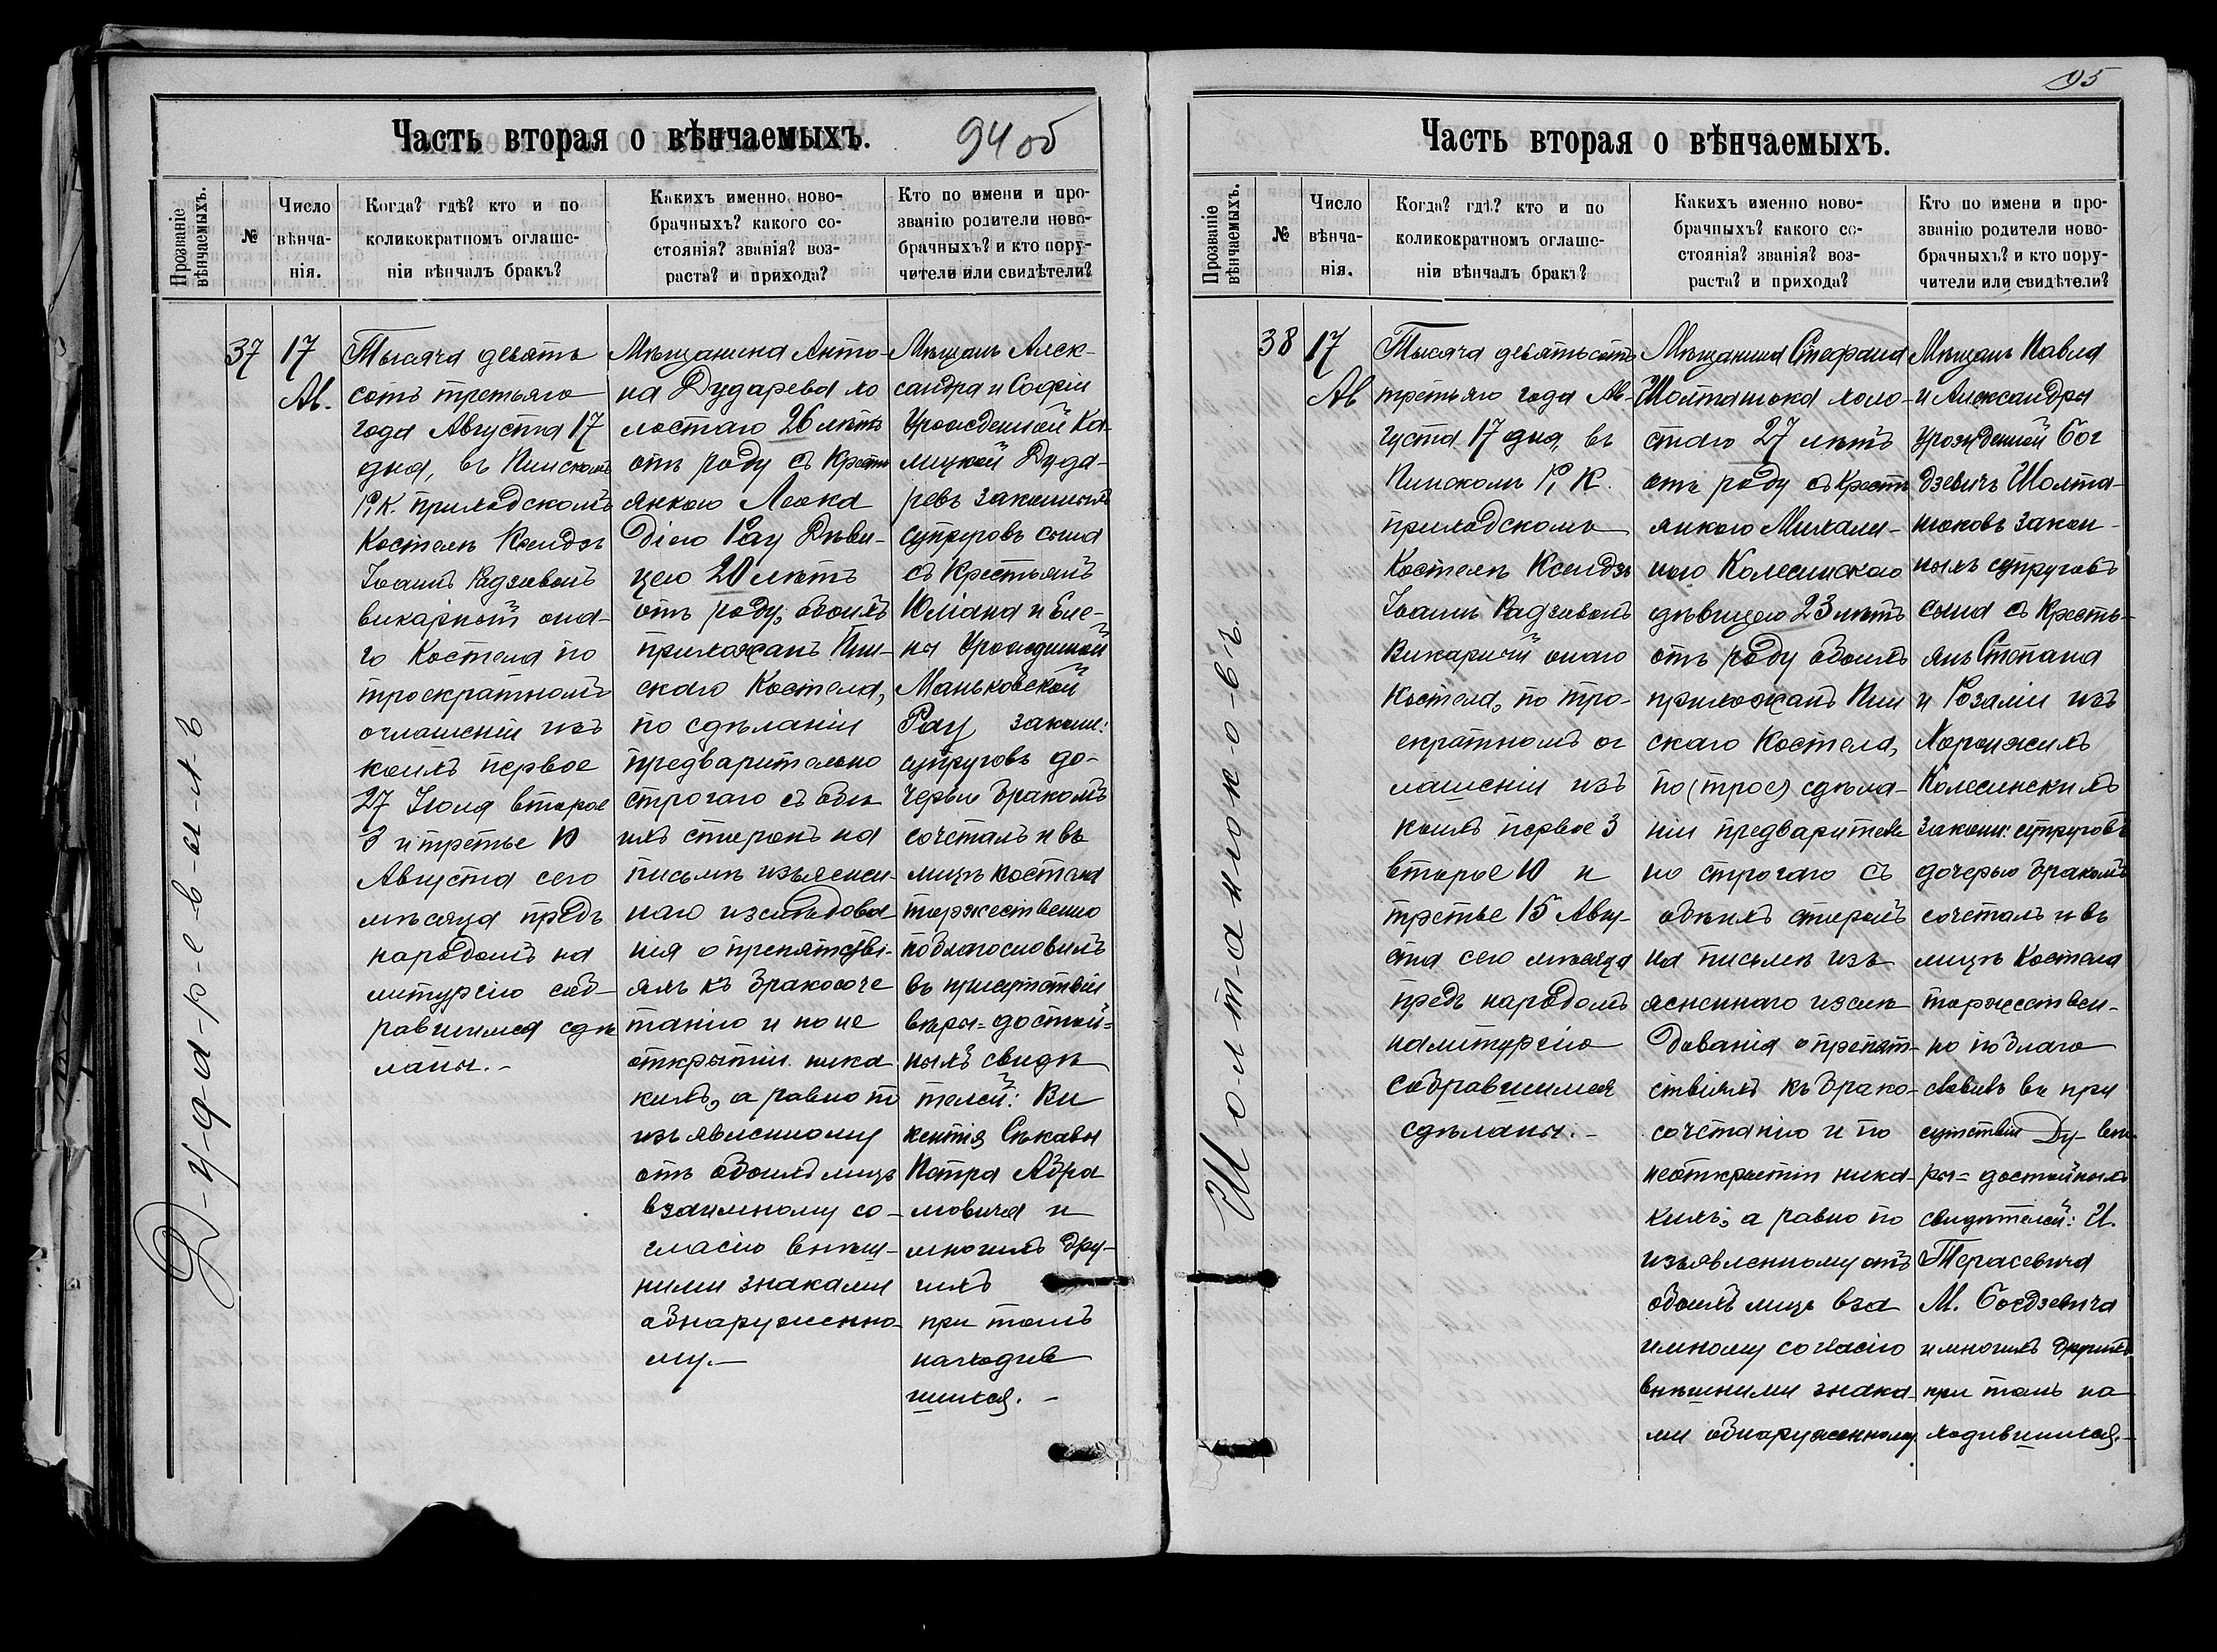 Часть вторая о вѣнчаемыхъ.
94 об
Прозваніе вѣнчаемыхъ.
№
Число
вѣнча-
нія.
Когда? гдѣ? кто и по
коликократномъ оглаше-
ніи вѣнчалъ бракъ?
Какихъ именно ново-
брачныхъ? какого со-
стоянія? званія? воз-
раста? и прихода?
Кто по имени и про-
званію родители ново-
брачныхъ? и кто пору-
чители или свидѣтели?
37
17
Ав.
Тысяча девять
сотъ третьяго
года Августа 17
дня, въ Пинскомъ
Р. К. приходскомъ
Костелѣ Ксендзъ
Іоаннъ Радзивонъ
викарный она-
го Костела по
троекратномъ
оглашеніи изъ
коихъ первое
27 Іюля второе
3 и третье 10
Августа сего
мѣсяца предъ
народомъ на
литургію соб-
равшимся сдѣ
ланы.-
Мѣщанина Анто-
на Дударева хо
лостаго 26 лѣтъ
отъ роду съ Крестъ
янкою Леока
діею Рау Дѣви-
цею 20 лѣтъ
отъ роду, обоихъ
прихожанъ Пин-
скаго Костела,
по сдѣланіи
предварительно
строгаго съ обѣ
ихъ сторонъ на
письмѣ изъяснен-
наго изслѣдова
нія о препятстві-
яхъ къ бракосоче
танію и по не
открытіи ника
кихъ, а равно по
изъявленному
отъ обоихъ лицъ
взаимному со-
гласію внѣш-
ними знаками
обнаруженно-
му.-
Мѣщанъ Алек-
сандра и Софіи
Урожденной Ка-
лицкой Дуда-
ревъ законныхъ
супруговъ сына
съ Крестьянъ
Юліана и Еле-
ны Урожденной
Маньковской
Рау законн:
супруговъ до-
черью бракомъ
сочеталъ и въ
лицѣ Костела
торжественно
поблагословилъ
въ присутствіи
вѣры=достой=
ныхъ свидѣ
телей: Ви
кентія Сѣкавы
Петра Абра
мовича и
многихъ дру-
гихъ
при томъ
находив
шихся.-
Д-у-д-а-р-е-в-ы-х-ъ
95
Часть вторая о вѣнчаемыхъ.
Прозваніе вѣнчаемыхъ.
№
Число
вѣнча-
нія.
Когда? гдѣ? кто и по
коликократномъ оглаше-
ніи вѣнчалъ бракъ?
Какихъ именно ново-
брачныхъ? какого со-
стоянія? званія? воз-
раста? и прихода?
Кто по имени и про-
званію родители ново-
брачныхъ? и кто пору-
чители или свидѣтели?
38
17
Ав
Тысяча девятьсотъ
третьяго года Ав-
густа 17 дня, въ
Пинскомъ Р. К.
приходскомъ
Костелѣ Ксендзъ
Іоаннъ Радзивонъ
Викарный онаго
Костела, по трое-
екратномъ ог
лашеніи изъ
коихъ первое 3
второе 10 и
третье 15 Авгу-
ста сего мѣсяца
предъ народомъ
на литургію
собравшимся
сдѣланы.-
Мѣщанина Стефана
Шолтанюка холо-
стаго 27 лѣтъ
отъ роду съ Кресть
янкою Михали-
ною Колесинскою
дѣвицею 23 лѣтъ
отъ роду обоихъ
прихожанъ Пин
скаго Костела,
по (трое) сдѣла-
ніи предварительн
но строгаго съ
обѣихъ сторонъ
на письмѣ изъ
ясненнаго изслѣ
дованія о препят-
ствіяхъ къ брако-
сочетанію и по
неоткрытіи ника-
кихъ, а равно по
изъявленному отъ
обоихъ лицъ вза
имному согласію
внѣшними знака-
ми обнаруженному.
Мѣщанъ Павла
и Александры
Урожденной Бог
дзевичъ Шолта-
нюковъ закон-
ныхъ супруговъ
сына съ Кресть-
янъ Степана
и Розаліи изъ
Хоронжихъ
Колесинскихъ
законн: супруговъ
дочерью бракомъ
сочеталъ и въ
лицѣ Костела
торжествен-
но поблаго
словилъ въ при
сутствіи Ду- вѣ-
ры=достойныхъ
свидѣтелей: И.
Терасевича
М. Богдзевича
и многихъ другихъ
при томъ на
ходившихся.-
Ш о л т-а н ю к о-в-ъ.